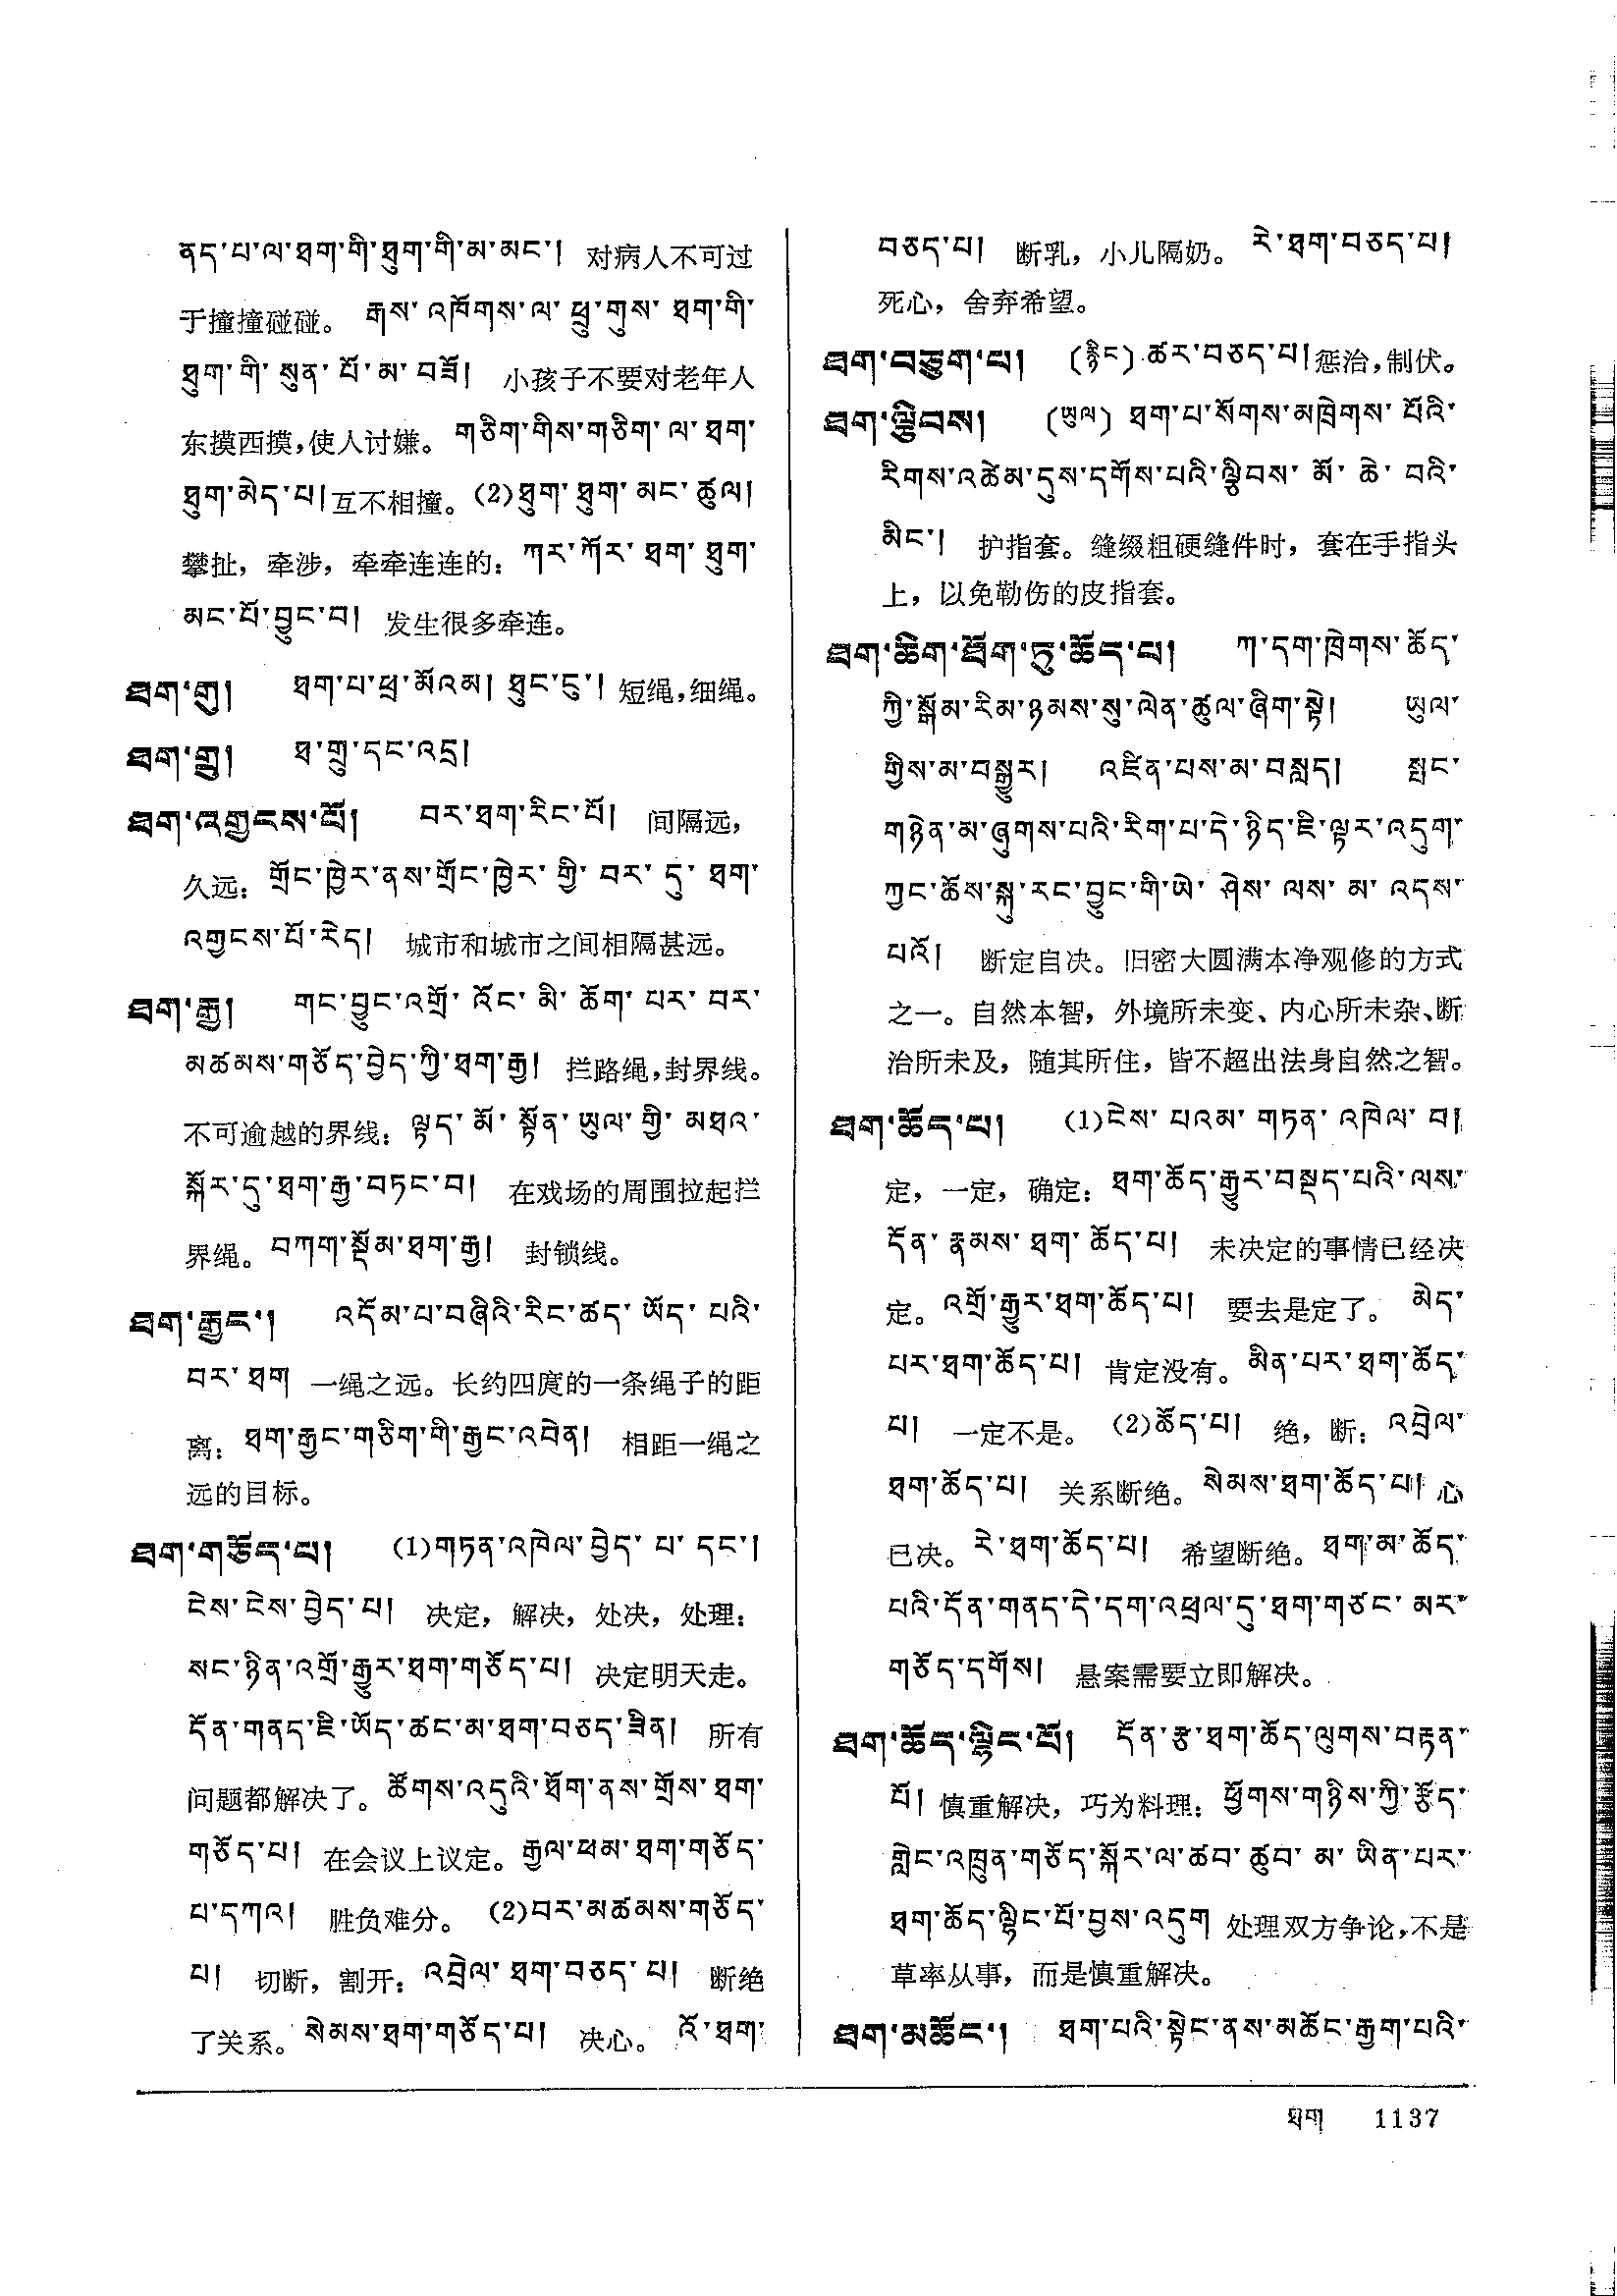 ནད་པ་ལ་ཐག་གི་ཐུག་གི་མ་མང་། 对病人不可过
于撞撞碰碰。 རྒས་འཁོགས་ལ་ཕྲུ་གུས་ཐག་གི་
ཐུག་གི་སུན་པོ་མ་བཟོ། 小孩子不要对老年人
东摸西摸,使人讨嫌。 གཅིག་གིས་གཅིག་ལ་ཐག་
ཐུག་མེད་པ། 互不相撞。(2)ཐུག་ཐུག་མང་ཚུལ།
攀扯，牵涉，牵牵连连的: ཀར་ཀོར་ཐག་ཐུག་
མང་པོ་བྱུང་བ། 发生很多牵连。
ཐག་གུ། ཐག་པ་ཕྲ་མོའམ། ཐུང་ངུ་། 短绳,细绳。
ཐག་གྲུ། ཐ་གྲུ་དང་འདྲ།
ཐག་འགྱངས་པོ། བར་ཐག་རིང་པོ། 间隔远，
久远: གྲོང་ཁྱེར་ནས་གྲོང་ཁྱེར་གྱི་བར་དུ་ཐག་
འགྱངས་པོ་རེད། 城市和城市之间相隔甚远。
ཐག་རྒྱ། གང་བྱུང་འགྲོ་འོང་མི་ཆོག་པར་བར་
མཚམས་གཅོད་བྱེད་ཀྱི་ཐག་རྒྱ། 拦路绳,封界线。
不可逾越的界线: ལྟད་མོ་སྟོན་ཡུལ་གྱི་མཐའ་
སྐོར་དུ་ཐག་རྒྱ་བཏང་བ། 在戏场的周围拉起拦
界绳。 བཀག་སྡོམ་ཐག་རྒྱ། 封锁线。
ཐག་རྒྱང་། འདོམ་པ་བཞིའི་རིང་ཚད་ཡོད་པའི་
བར་ཐག 一绳之远。长约四庹的一条绳子的距
离: ཐག་རྒྱང་གཅིག་གི་རྒྱང་འབེན། 相距一绳之
远的目标。
ཐག་གཅོད་པ། (1)གཏན་འཁེལ་བྱེད་པ་དང་།
ངེས་ངེས་བྱེད་པ། 决定，解决，处决，处理:
སང་ཉིན་འགྲོ་རྒྱུར་ཐག་གཅོད་པ། 决定明天走。
དོན་གནད་ཇི་ཡོད་ཚང་མ་ཐག་བཅད་ཟིན། 所有
问题都解决了。 ཚོགས་འདུའི་ཐོག་ནས་གྲོས་ཐག་
གཅོད་པ། 在会议上议定。 རྒྱལ་ཕམ་ཐག་གཅོད་
པ་དཀའ། 胜负难分。 (2)བར་མཚམས་གཅོད་
པ། 切断，割开: འབྲེལ་ཐག་བཅད་པ། 断绝
了关系。 སེམས་ཐག་གཅོད་པ། 决心。 འོ་ཐག་
བཅད་པ། 断乳，小儿隔奶。 རེ་ཐག་བཅད་པ།
死心，舍弃希望。
ཐག་བཅུག་པ། (རྙིང) ཚར་བཅད་པ། 惩治,制伏。
ཐག་ལྕིབས། (ཡུལ) ཐག་པ་སོགས་མཁྲེགས་པོའི་
རིགས་འཚེམ་དུས་དགོས་པའི་ལྕིབས་མོ་ཆེ་བའི་
མིང་། 护指套。缝缀粗硬缝件时，套在手指头
上，以免勒伤的皮指套。
ཐག་ཆིག་ཐོག་ཏུ་ཆོད་པ། ཀ་དག་ཁྲེགས་ཆོད་
ཀྱི་སྒོམ་རིམ་ཉམས་སུ་ལེན་ཚུལ་ཞིག་སྟེ། ཡུལ་
གྱིས་མ་བསྒྱུར། འཛིན་པས་མ་བསླད། སྤང་
གཉེན་མ་ཞུགས་པའི་རིག་པ་དེ་ཉིད་ཇི་ལྟར་འདུག་
ཀྱང་ཆོས་སྐུ་རང་བྱུང་གི་ཡེ་ཤེས་ལས་མ་འདས་
པའོ། 断定自决。旧密大圆满本净观修的方式
之一。自然本智，外境所未变、内心所未杂、断
治所未及，随其所住，皆不超出法身自然之智。
ཐག་ཆོད་པ། (1)ངེས་པའམ་གཏན་འཁེལ་བ།
定，一定，确定: ཐག་ཆོད་རྒྱུར་བསྡད་པའི་ལས་
དོན་རྣམས་ཐག་ཆོད་པ། 未决定的事情已经决
定。 འགྲོ་རྒྱུར་ཐག་ཆོད་པ། 要去是定了。 མེད་
པར་ཐག་ཆོད་པ། 肯定没有。 མིན་པར་ཐག་ཆོད་
པ། 一定不是。 (2)ཆོད་པ། 绝，断: འབྲེལ་
ཐག་ཆོད་པ། 关系断绝。 སེམས་ཐག་ཆོད་པ། 心
已决。 རེ་ཐག་ཆོད་པ། 希望断绝。 ཐག་མ་ཆོད་
པའི་དོན་གནད་དེ་དག་འཕྲལ་དུ་ཐག་གཙང་མར་
གཅོད་དགོས། 悬案需要立即解决。
ཐག་ཆོད་ལྷིང་པོ། དོན་རྩ་ཐག་ཆོད་ལུགས་བརྟན་
པོ། 慎重解决，巧为料理: ཕྱོགས་གཉིས་ཀྱི་རྩོད་
གླེང་འཁྲུན་གཅོད་སྐོར་ལ་ཚབ་ཚུབ་མ་ཡིན་པར་
ཐག་ཆོད་ལྷིང་པོ་བྱས་འདུག 处理双方争论,不是
草率从事，而是慎重解决。
ཐག་མཆོང་། ཐག་པའི་སྟེང་ནས་མཆོང་རྒྱག་པའི་
ཐག 1137